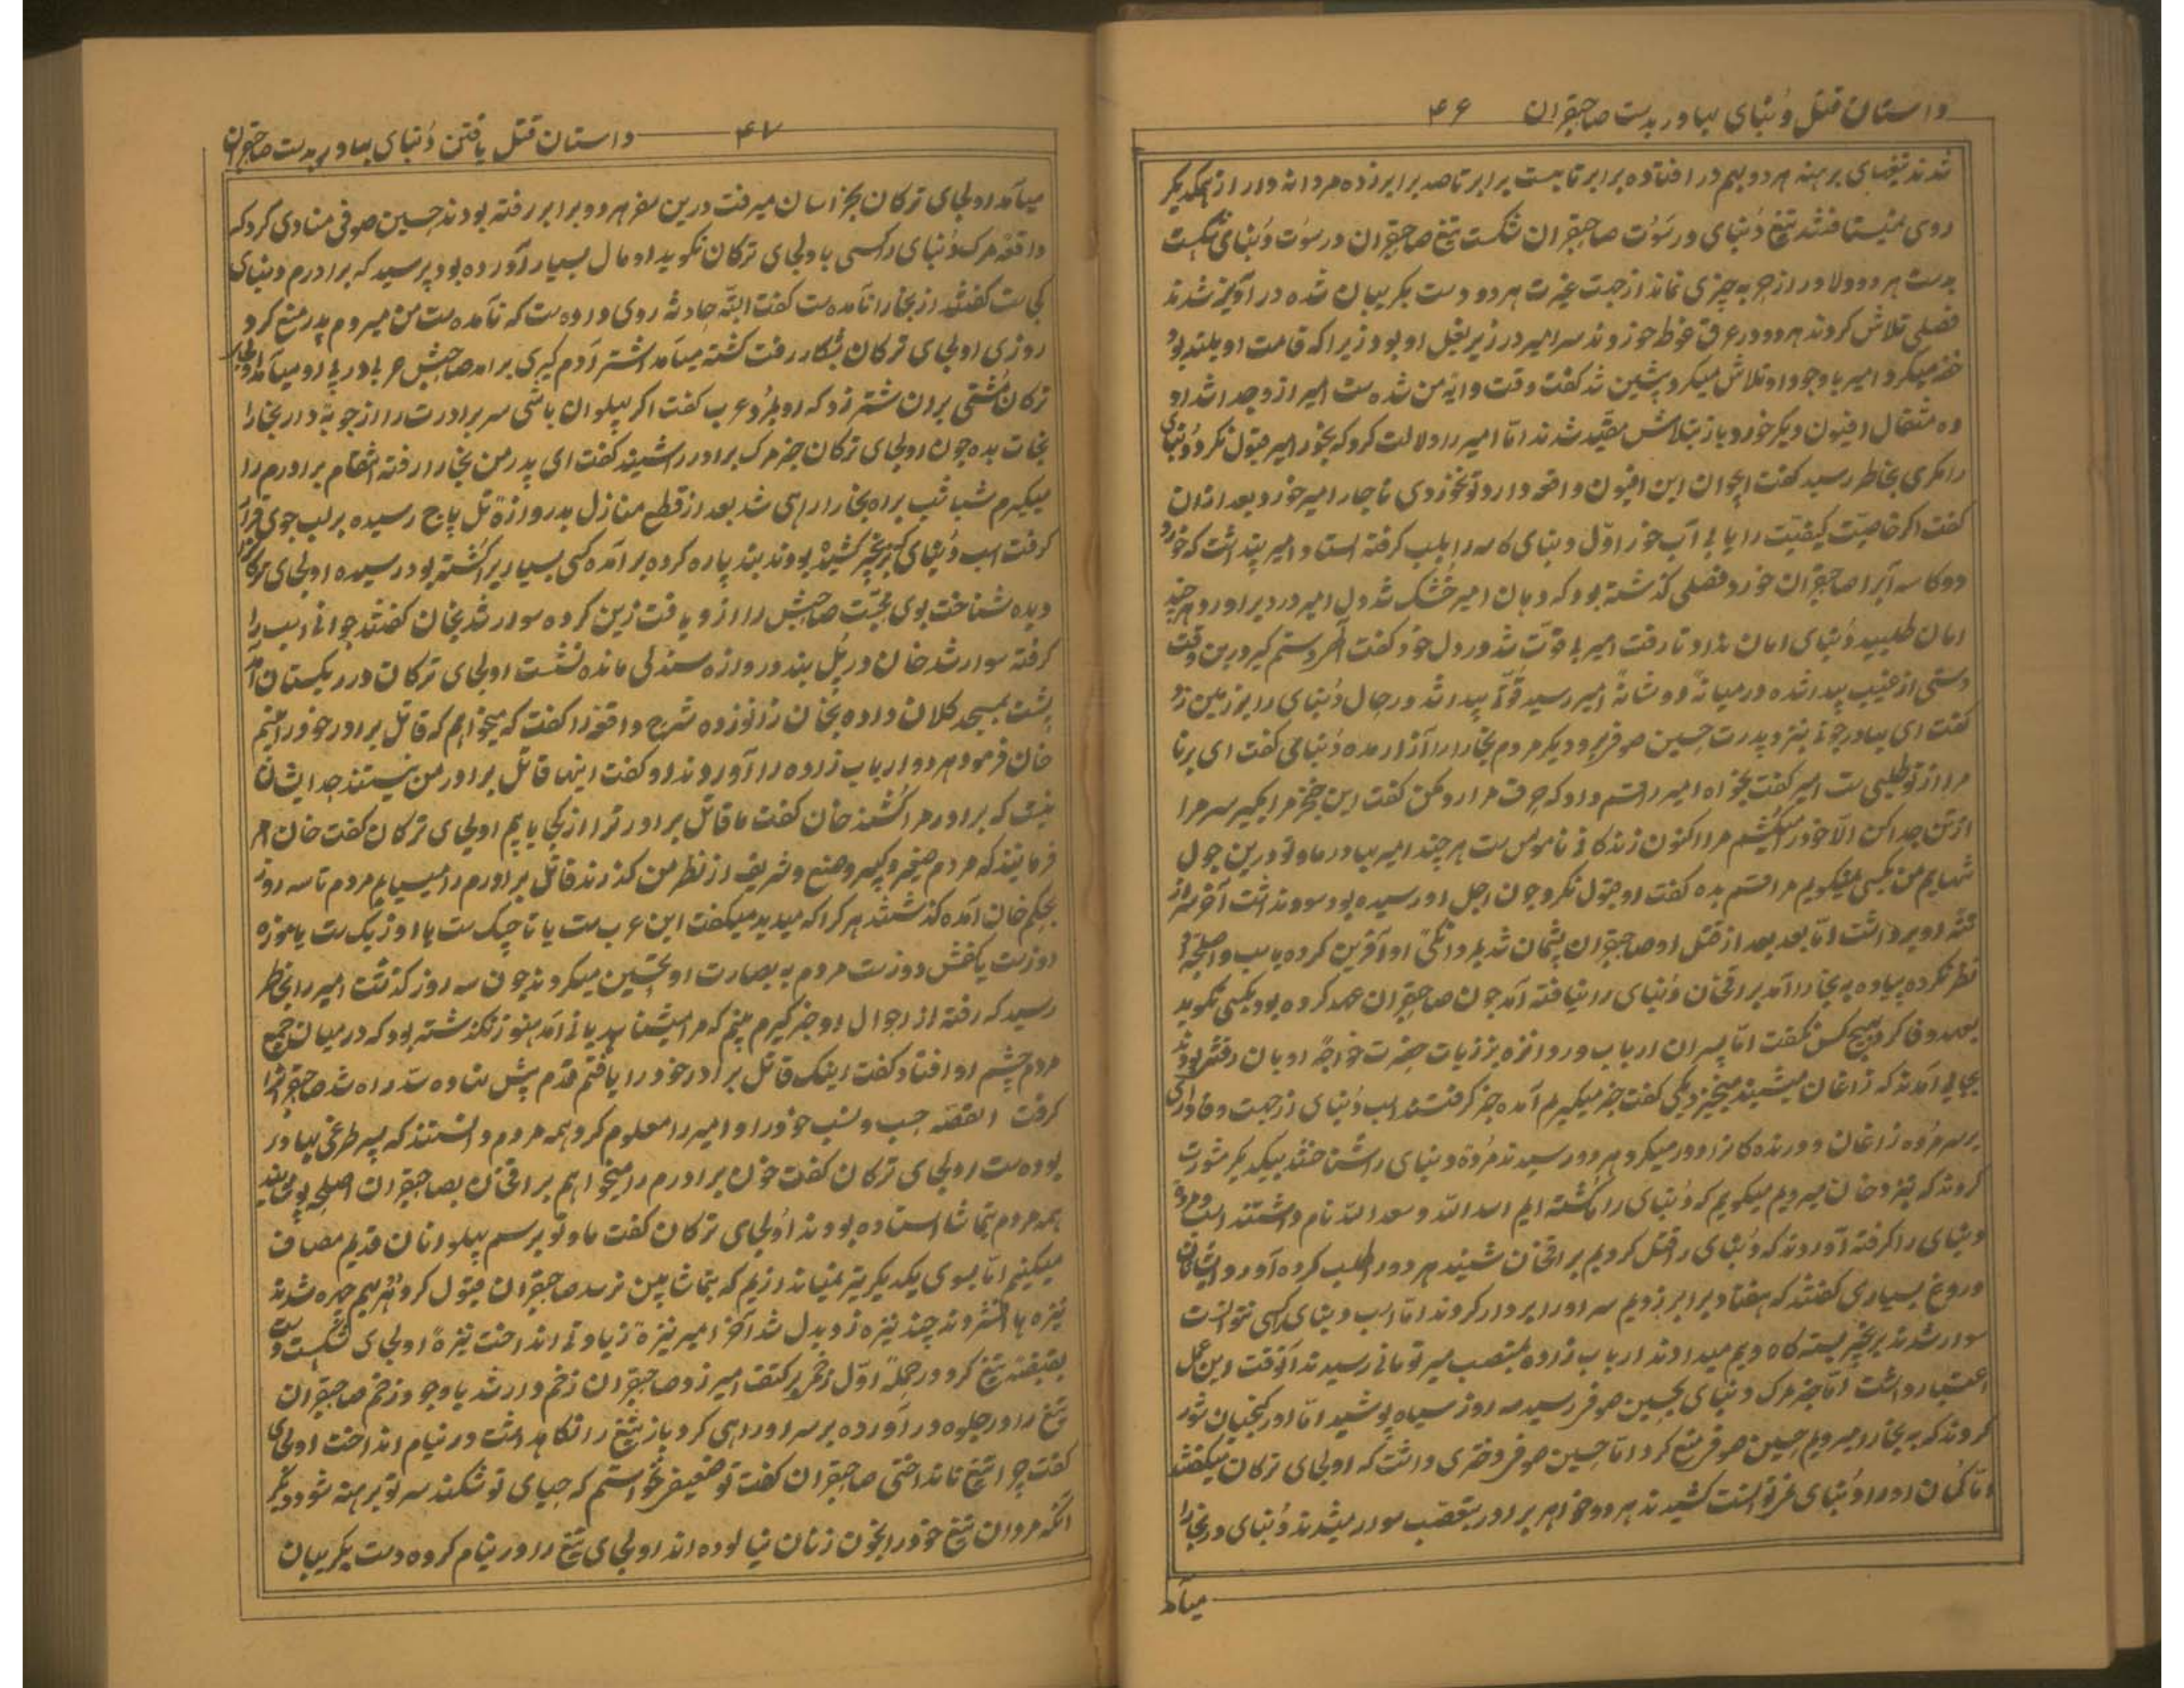 داستان قتل دُنبای بهادر بدست صاحبقران ۴۶
شدند تیغهای برهنه هر دو بهم در افتاده برابر تابست برابر تاصد برابر زده مردانه وار از همکدیگر
روی نمیتافتند تیغ دُنبای در سَوُت صاحبقران شکست تیغ صاحبقران در سوُت دُنبای شکست
بدست هر دو دلاور از حربه چیزی نماند از جهت غیرت هر دو دست بکریبان شده در آویز شدند
فصلی تلاش کردند هر دو در عرق غوط خوردند سر امیر در زیر بغل او بود زیرا که قامت او بلند بود
خفه میکرد امیر با وجود او تلاش میکرد پشین شد کفت وقت وایهٔ من شده ست امیر ازو جدا شد او
ده مثقال افیون دیکر خورد باز بتلاش مقید شدند امّا امیر را دلالت کرد که بخور امیر قبول نکرد دُنبای
را مکری بخاطر رسید کفت ایجوان این افیون واقعه دارد تو نخوردی ناچار امیر خورد بعد ازان
کفت اکر خاصیّت کیفیّت را یابی آب خور اوّل دنبای کاسه را بلب کرفته استاد امیر پنداشت که خورد
دو کاسه آبرا صاحبقران خورد فصلی کذشته بود که دهان امیر خشک شد دل امیر درد برآورد هر چند
امان طلبید دُنبای امان نداد تا رفت امیر بی قوّت شد در دل خود کفت آخر دستم کیر درین وقت
دستی از غیب پیدا شده در میانهٔ دو شانهٔ امیر رسید قوّتی پیدا شد در حال دُنبای را بر زمین زد
کفت ای بهادر چونی بنزد پدرت حسین صوفی برو دیکر مردم بخارا را آزار مده دُنبای کفت ای برنا
مرا از تو طلبی ست امیر کفت بخواه امیر را قسم داد که حرف مرا رد مکن کفت این خنجر مرا بکیر سر مرا
از تن جدا کن الّا خود را میکُشم مرا اکنون زندکانی ناموس ست هر چند امیر بهادر ما و تو درین چول
تنهایم من بکسی نمیکویم مرا قسم بده کفت او قبول نکرد چون اجل او رسیده بود سود نداشت آخر سر از
تنهٔ او برداشت امّا بعد بعد از قتل او صاحبقران پشمان شد بمردانکیٔ او آفرین کرده باسب و اصلحهٔ او
نظر نکرده پیاده به بخارا آمد براقخان دُنبای را نیافته آمد چون صاحبقران عهد کرده بود بکسی نکوید
بعهد وفا کرد بهیچ کس نکفت امّا پسران ارباب وروانزه بزیارت حضرت خواجهٔ اوبان رفته بودند
بجایی آمدند که زاغان میشینند میخیزد یکی کفت خبر میکیریم آمده خبر کرفتند اسب دُنبای از جهت وفاداری
بر سر مُرده زاغان و درنده کانرا دور میکرد هر دو رسیدند مُردهٔ دنبای را شناختند بیکدیکر مشورت
کردند که بنزد خان میرویم میکویم که دُنبای را کُشته ایم اسد اللّه و سعد اللّه نام داشتند اسب و مردهٔ
دنبای را کرفته آوردند که دُنبای را قتل کردیم براقخان شنیده هر دو را طلب کرده آورد ایشان
دروغ بسیاری کفتند که هفتاد برابر زدیم سر او را بر دار کردند امّا اسب دنبای را کسی نتوانست
سوار شدند بزنجیر بسته کاه و یم میدادند ارباب زاده بمنصب میر تومانی رسیدند آنوقت این عمل
اعتبار داشت امّا خبر مرک دنبای بحسین صوفی رسید سه روز سیاه پوشید امّا اورکنجیان شور
کردند که به بخارا میرویم حسین صوفی منع کرد امّا حسین صوفی دختری داشت که اولجای ترکان میکفتند
امّا کمان او را دُنبای نمیتوانست کشیدند هر دو خواهر برادر بتعصب سوار میشدند دُنبای در بخارا
میآمد
داستان قتل یافتن دُنبای بهادر بدست صاحبقران ۴۷
میآمد اولجای ترکان بخراسان میرفت درین سفر هر دو برابر رفته بودند حسین صوفی منادی کرد که
واقعهٔ مرک دُنبای را کسی باولجای ترکان نکوید او مال بسیار آورده بود پرسید که برادرم دنبای
کجا ست کفتند از بخارا نآمده ست کفت البتّه حادثه روی داده ست که نآمده ست من میروم پدر منع کرد
روزی اولجای ترکان بشکار رفت کشته میآمد اشتر آدم کیری برآمد صاحبش عربی در پی او میآمد اولجای
ترکان مُشتی بران شتر زد که او بمُرد عرب کفت اکر پهلوان باشی سر برادرت را از چوبهٔ دار بخارا
نجات بده چون اولجای ترکان خبر مرک برادر را شنید کفت ای پدر من بخارا رفته انتقام برادرم را
میکیرم شبا شب براه بخارا راهی شد بعد از قطع منازل بدروازهٔ تل پاج رسیده بر لب جوی قرار
کرفت اسب دُنبای که بزنجیر کشیده بودند بند پاره کرده برآمده کسی بسیار را کُشته بود رسیده اولجای ترکانرا
دیده شناخت بوی محبّت صاحبش را ازو یافت زین کرده سوار شد بخان کفتند جوانی اسب را
کرفته سوار شد خان در پُل بند دروازه سندلی مانده نشست اولجای ترکان در ریکستان آمد
پشت بمسجد کلان داده بخان زانو زده شرح واقعه را کفت که میخواهم که قاتل برادر خود را بینم
خان فرمود هر دو ارباب زاده را آوردند او کفت اینها قاتل برادر من نیستند حد ایشان
نیست که برادر مرا کُشند خان کفت ما قاتل برادر ترا از کجا یابیم اولجای ترکان کفت خان امر
فرمایند که مردم صغیر و کبیر وضیع و شریف از نظر من کذرند قاتل برادرم را میسیابم مردم تا سه روز
بحکم خان آمده کذشتند هر کرا که میدید میکفت این عرب ست یا تاجیک ست یا اوزبک ست یا موزه
دوزست یا کفش دوزست مردم به بصارت او تحسین میکردند چون سه روز کذشت امیر را بخاطر
رسید که رفته از احوال او خبر کیرم بینم که مرا میشناسد یا نی آمد هنوز نکذشته بود که در میان جمیع
مردم چشم او افتاد کفت اینک قاتل برادر خود را یافتم قدم پیش نهاده سدّ راه شد صاحبقرانرا
کرفت القصّه حسب و نسب خود را و امیر را معلوم کرد همه مردم دانستند که پسر طرغی بهادر
بوده ست اولجای ترکان کفت خون برادرم را میخواهم براقخان بصاحبقران اصلحه پوشانید
همه مردم بتماشا استاده بودند اُولجای ترکان کفت ما و تو برسم پهلوانان قدیم مصاف
میکنیم امّا بسوی یکدیکر تیر نمیاندازیم که بتماشا بین نرسد صاحبقران قبول کرد هر دو بهم چیره شدند
نیزه ها افشردند چند نیزه زد و بدل شد آخر امیر نیزهٔ زیادتی انداخت نیزهٔ اولجای شکست دست
بقبضهٔ تیغ کرد در حملهٔ اوّل زخم بر کتف امیر زد صاحبقران زخم دار شد با وجود زخم صاحبقران
تیغ را در جلوه در آورده بر سر او راهی کرد باز تیغ را نکاهداشت در نیام انداخت اولجای
کفت چرا تیغ نانداختی صاحبقران کفت تو ضعیفی نخواستم که حیای تو شکند سر تو برهنه شود دیکر
آنکه مردان تیغ خود را بخون زنان نیالوده اند اولجای تیغ را در نیام کرده دست بکریبان